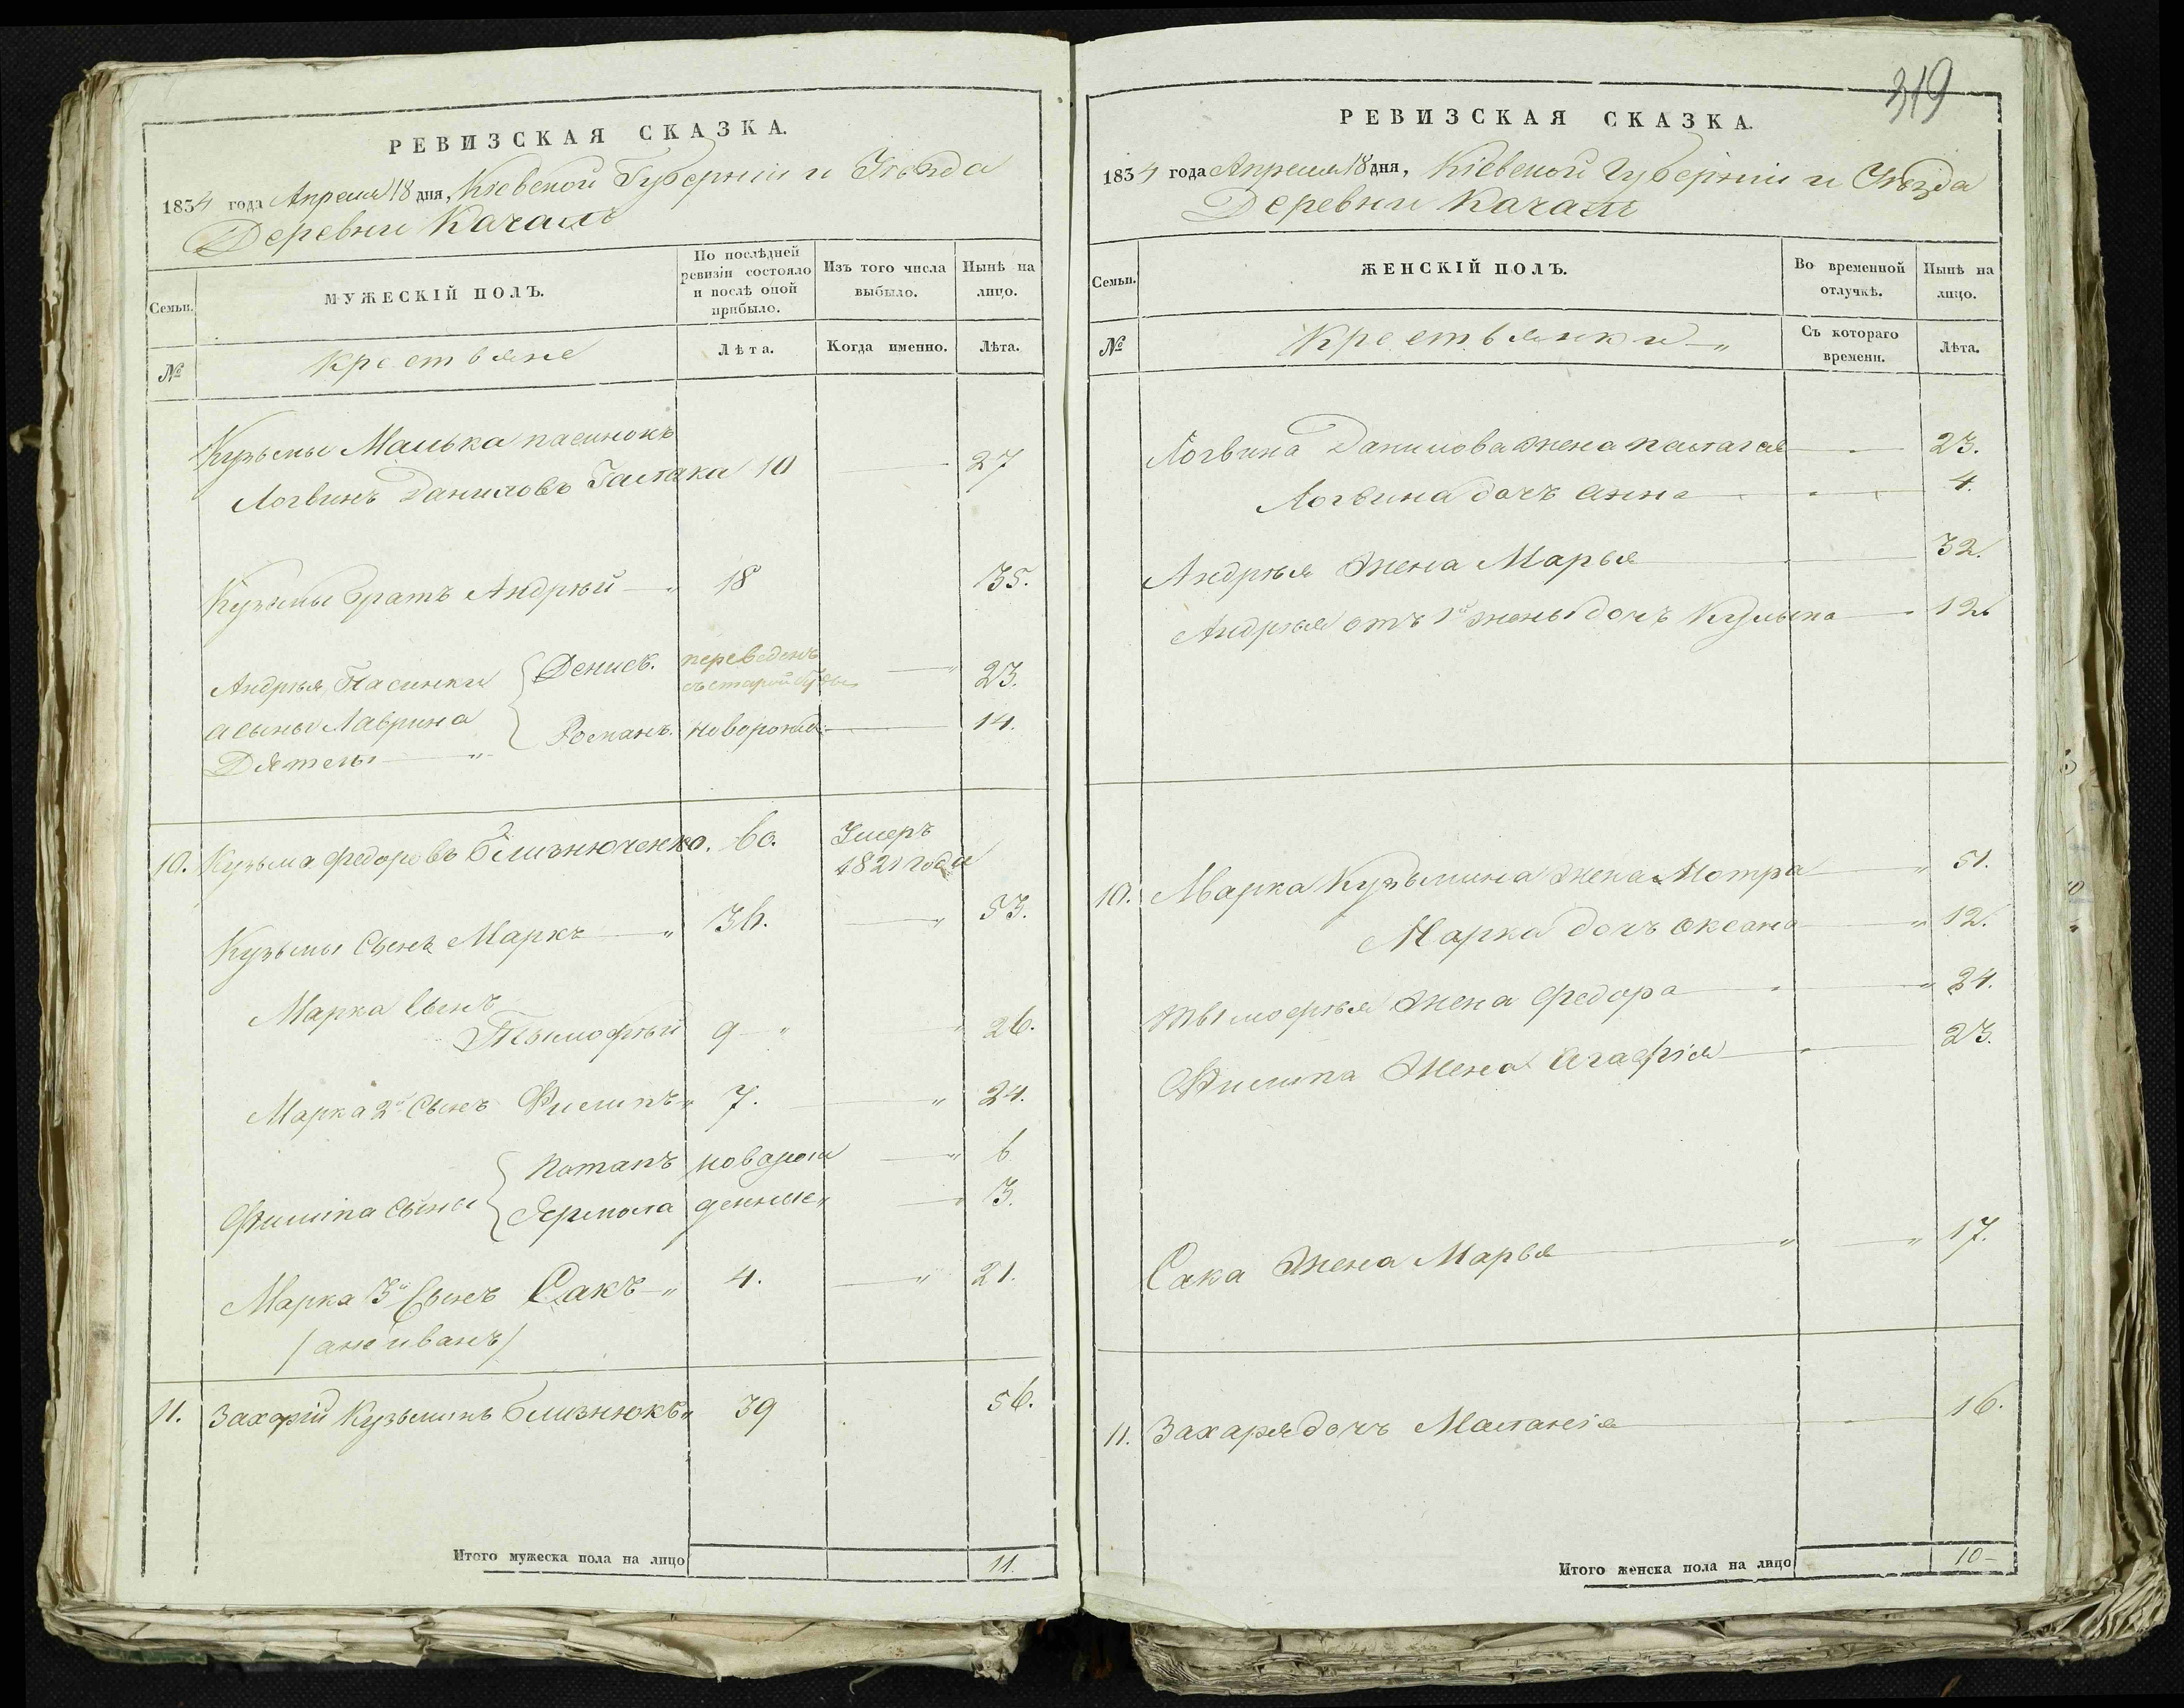 РЕВИЗСКАЯ СКАЗКА.
1834 года Апреля 18 дня, Кіевской Губерніи и Уѣзда
Деревни Качалъ
Семьи.
МУЖЕСКІЙ ПОЛЪ.
По послѣдней ревизіи состояло и послѣ оной прибыло.
Изъ того числа выбыло.
Нынѣ на лицо.
№
Крестьяне
Лѣта.
Когда именно.
Лѣта.
Кузьмы Малька пасинокъ
Логвинъ Даниловъ 10 27
Кузьмы братъ Андрѣй 18 35.
Андрѣя Пасинки Денисъ. переведенъ 23.
съ старой
а сыны Лаврина Романъ. новорожд. 14.
Дятелы
10. Кузьма Федоровъ Близнюченко. 60. Умеръ
1821 года
Кузьмы Сынъ Маркъ 36. 53.
Марка Сынъ
Тымофѣй 9 26.
Марка 2й Сынъ Филипъ 7. 24.
Потапъ новорож 6
Филипа Сыны Ярмола денные 3.
Марка 3й Сынъ Сакъ 4. 21.
/ онъ же Иванъ /
11. Захарій Кузьминъ Близнюкъ 39 56.
Итого мужеска пола на лицо 11.
319
РЕВИЗСКАЯ СКАЗКА.
1834 года Апреля 18 дня, Кіевской Губерніи и Уѣзда
Деревни Качалъ
Семьи.
ЖЕНСКІЙ ПОЛЪ.
Во временной отлучкѣ.
Нынѣ на лицо.
№
Крестьянки
Съ котораго времени.
Лѣта.
Логвина Данилова жена Палагея 23.
Логвина дочъ Анна 4.
Андрѣя Жена Марья 32.
Андрѣя отъ 1й жены дочъ Кулына 12.
10. Марка Кузьмина жена Мотра 51.
Марка дочъ Оксана 12.
Тымофѣя Жена Федора 24.
Филипа Жена Агафія 23.
Сака Жена Марья 17.
11. Захарія дочъ Маланія 16.
Итого женска пола на лицо 10